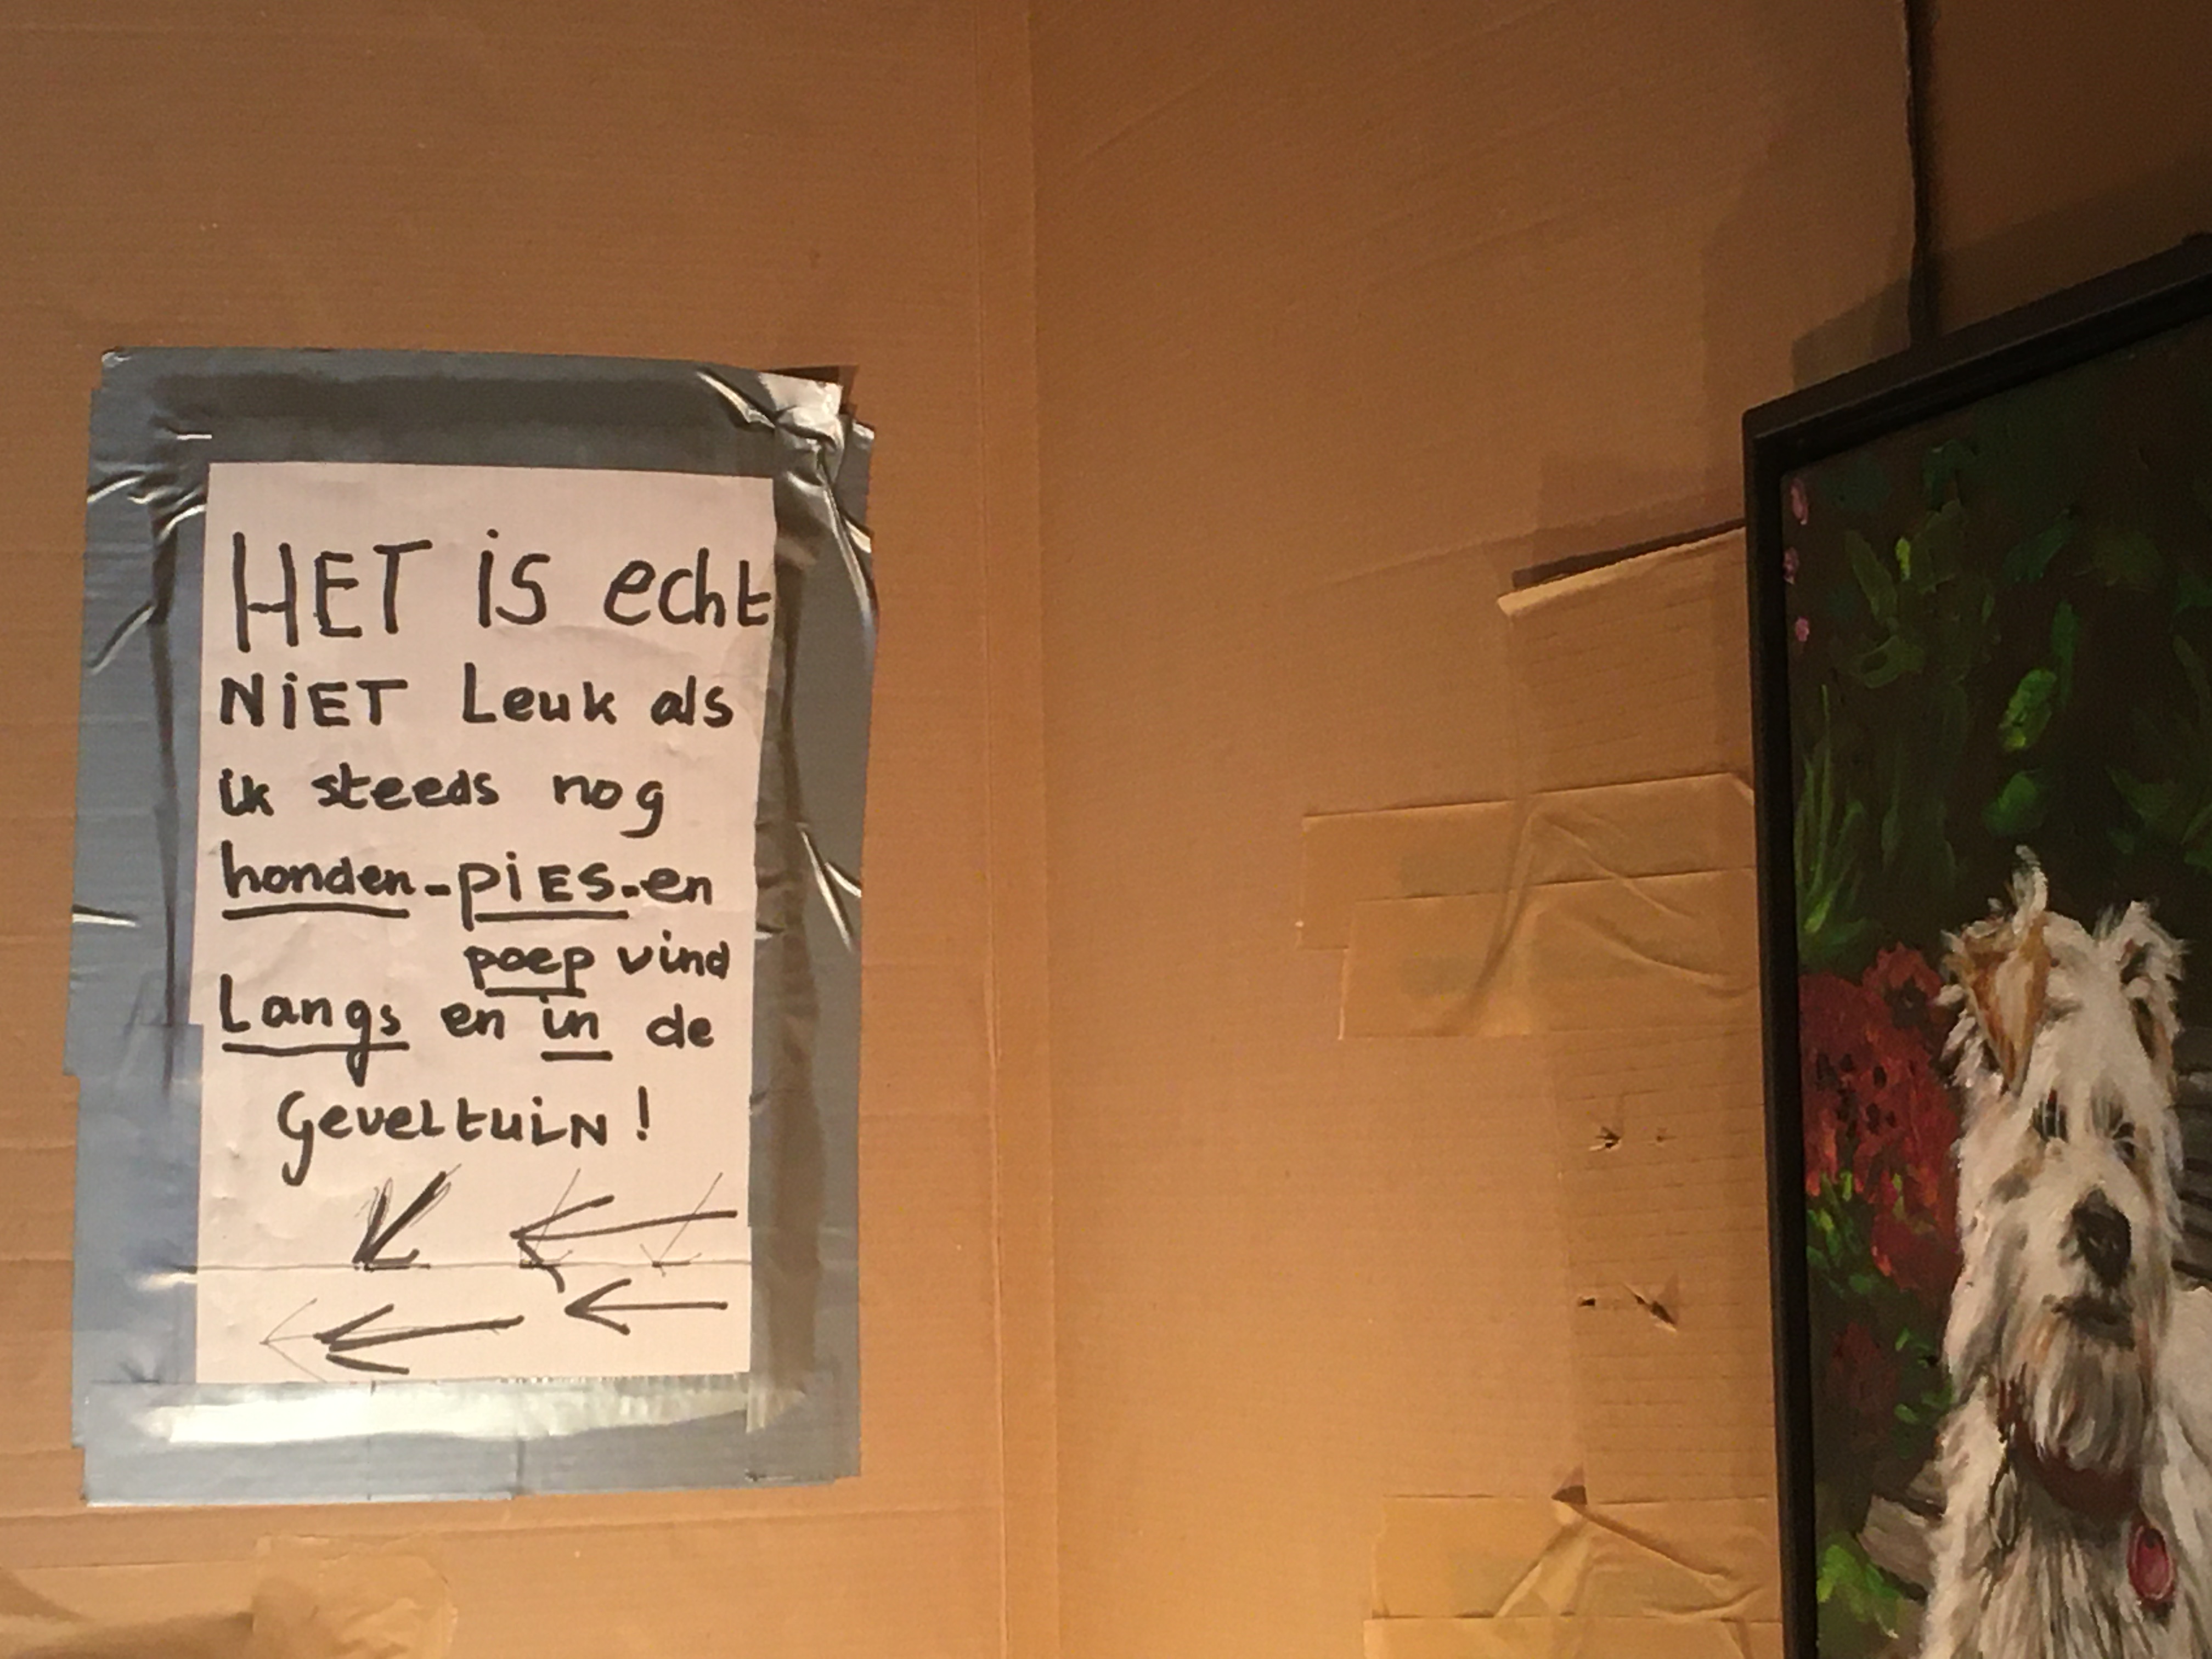 HET is echt
NiET Leuk als
ik steeds nog
honden-piES-en
poep vind
Langs en in de
GeveLtuiN!